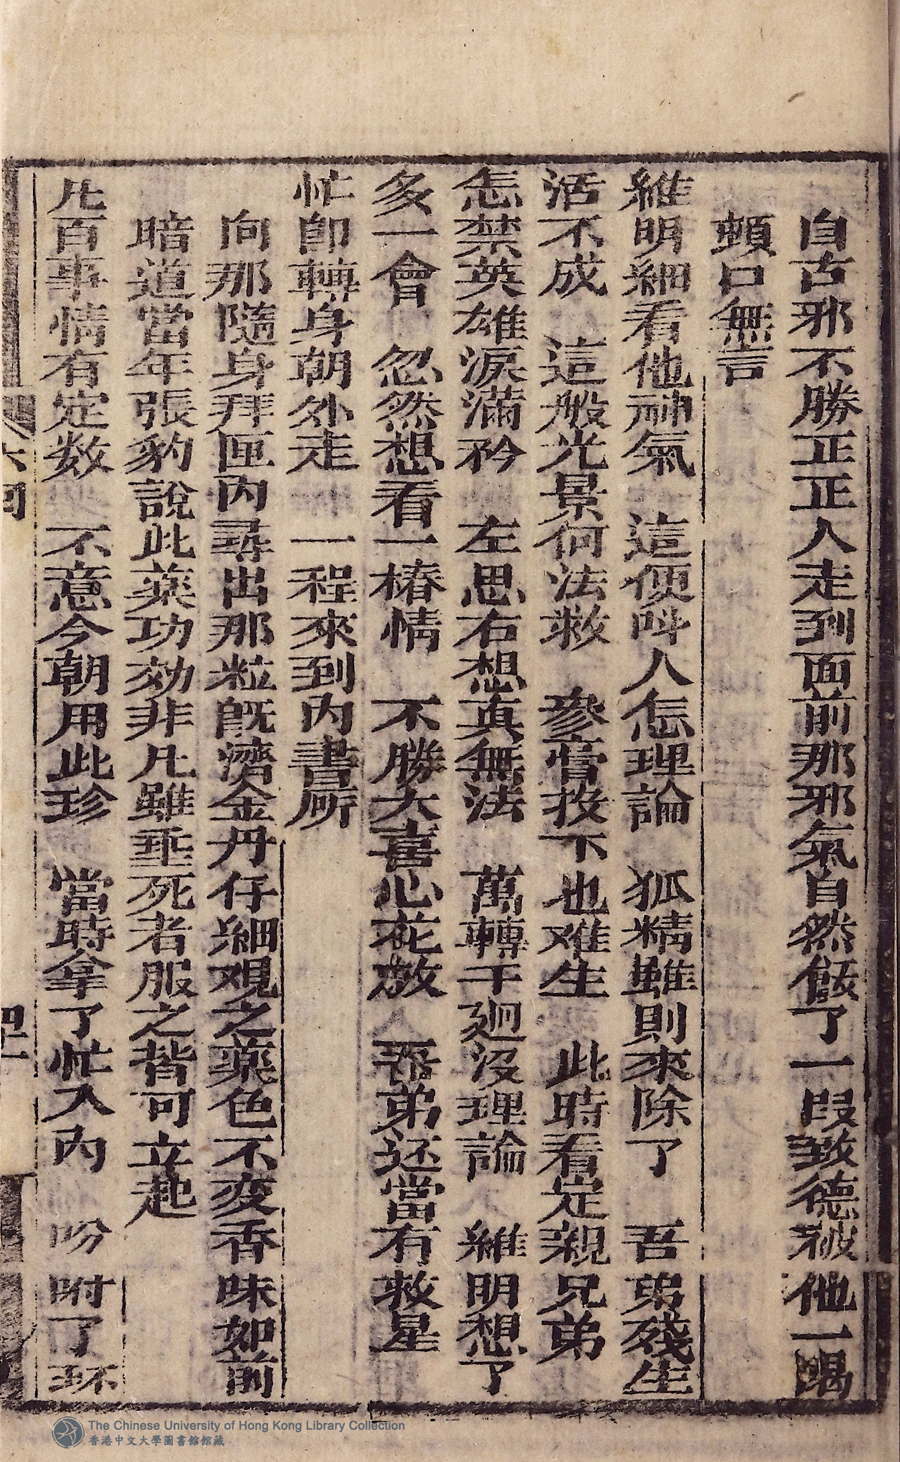 自古邪不勝正正人走到面前那邪氣自然餒了一段致德被他一喝
頓口無言
維明細看他神氣　這便呌人怎理論　狐精雖則來除了　吾弟殘生
活不成　這般光景何法救　參膏投下也难生　此時看定親兄弟
怎禁英雄淚滿衿　左思右想真無法　萬轉千廻沒理論　維明想了
多一會　忽然想看一樁情　不勝大喜心花放　吾弟还當有救星
忙即轉身朝外走　一程來到内書𠩄
向那隨身拜匣内尋出那粒既濟金丹仔細观之藥色不变香味如前
暗道當年張豹說此藥功効非凡雖垂死者服之皆可立起
凡百事情有定数　不意今朝用此珍　當時拿了忙入内　吩咐了环
六囘
The Chinese University of Hong Kong Library Collection
香港中文大學圖書館館藏